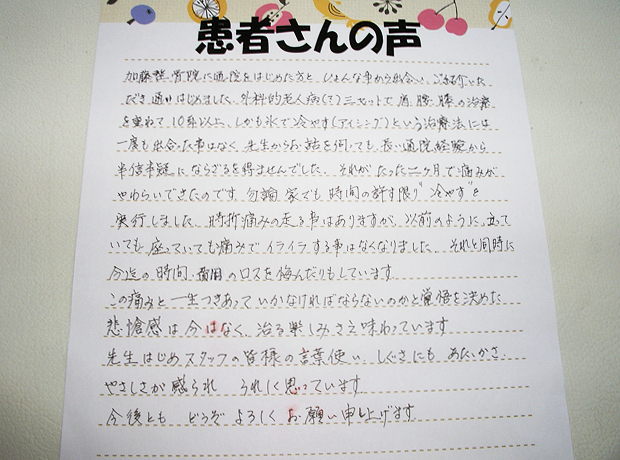 患者さんの声
加藤整骨院に通院をはじめた方と、ひょんな事から出会い、ご紹介いた
だき通いはじめました。外科的老人病(?)三セットで肩、腰、膝の治療
を重ねて10年以上、しかも氷で冷やす(アイシング)という治療法には
一度も出会った事はなく、先生からお話を伺っても、長い通院経験から
半信半疑にならざるを得ませんでした。それがたった二ヶ月で痛みが
やわらいできたのです。勿論家でも時間の許す限り"冷やす"を
実行しました。時折痛みの走る事はありますが、以前のように、立って
いても座っていても痛みでイライラする事はなくなりました。それと同時に
今迄の時間、費用のロスを悔んだりもしています。
この痛みと一生つきあっていかなければならないのかと覚悟を決めた
悲愴感は今はなく、治る楽しみさえ味わっています。
先生はじめスタッフの皆様の言葉使い、しぐさにもあたゝかさ、
やさしさが感られ うれしく思っています。
今後とも どうぞよろしくお願い申し上げます。